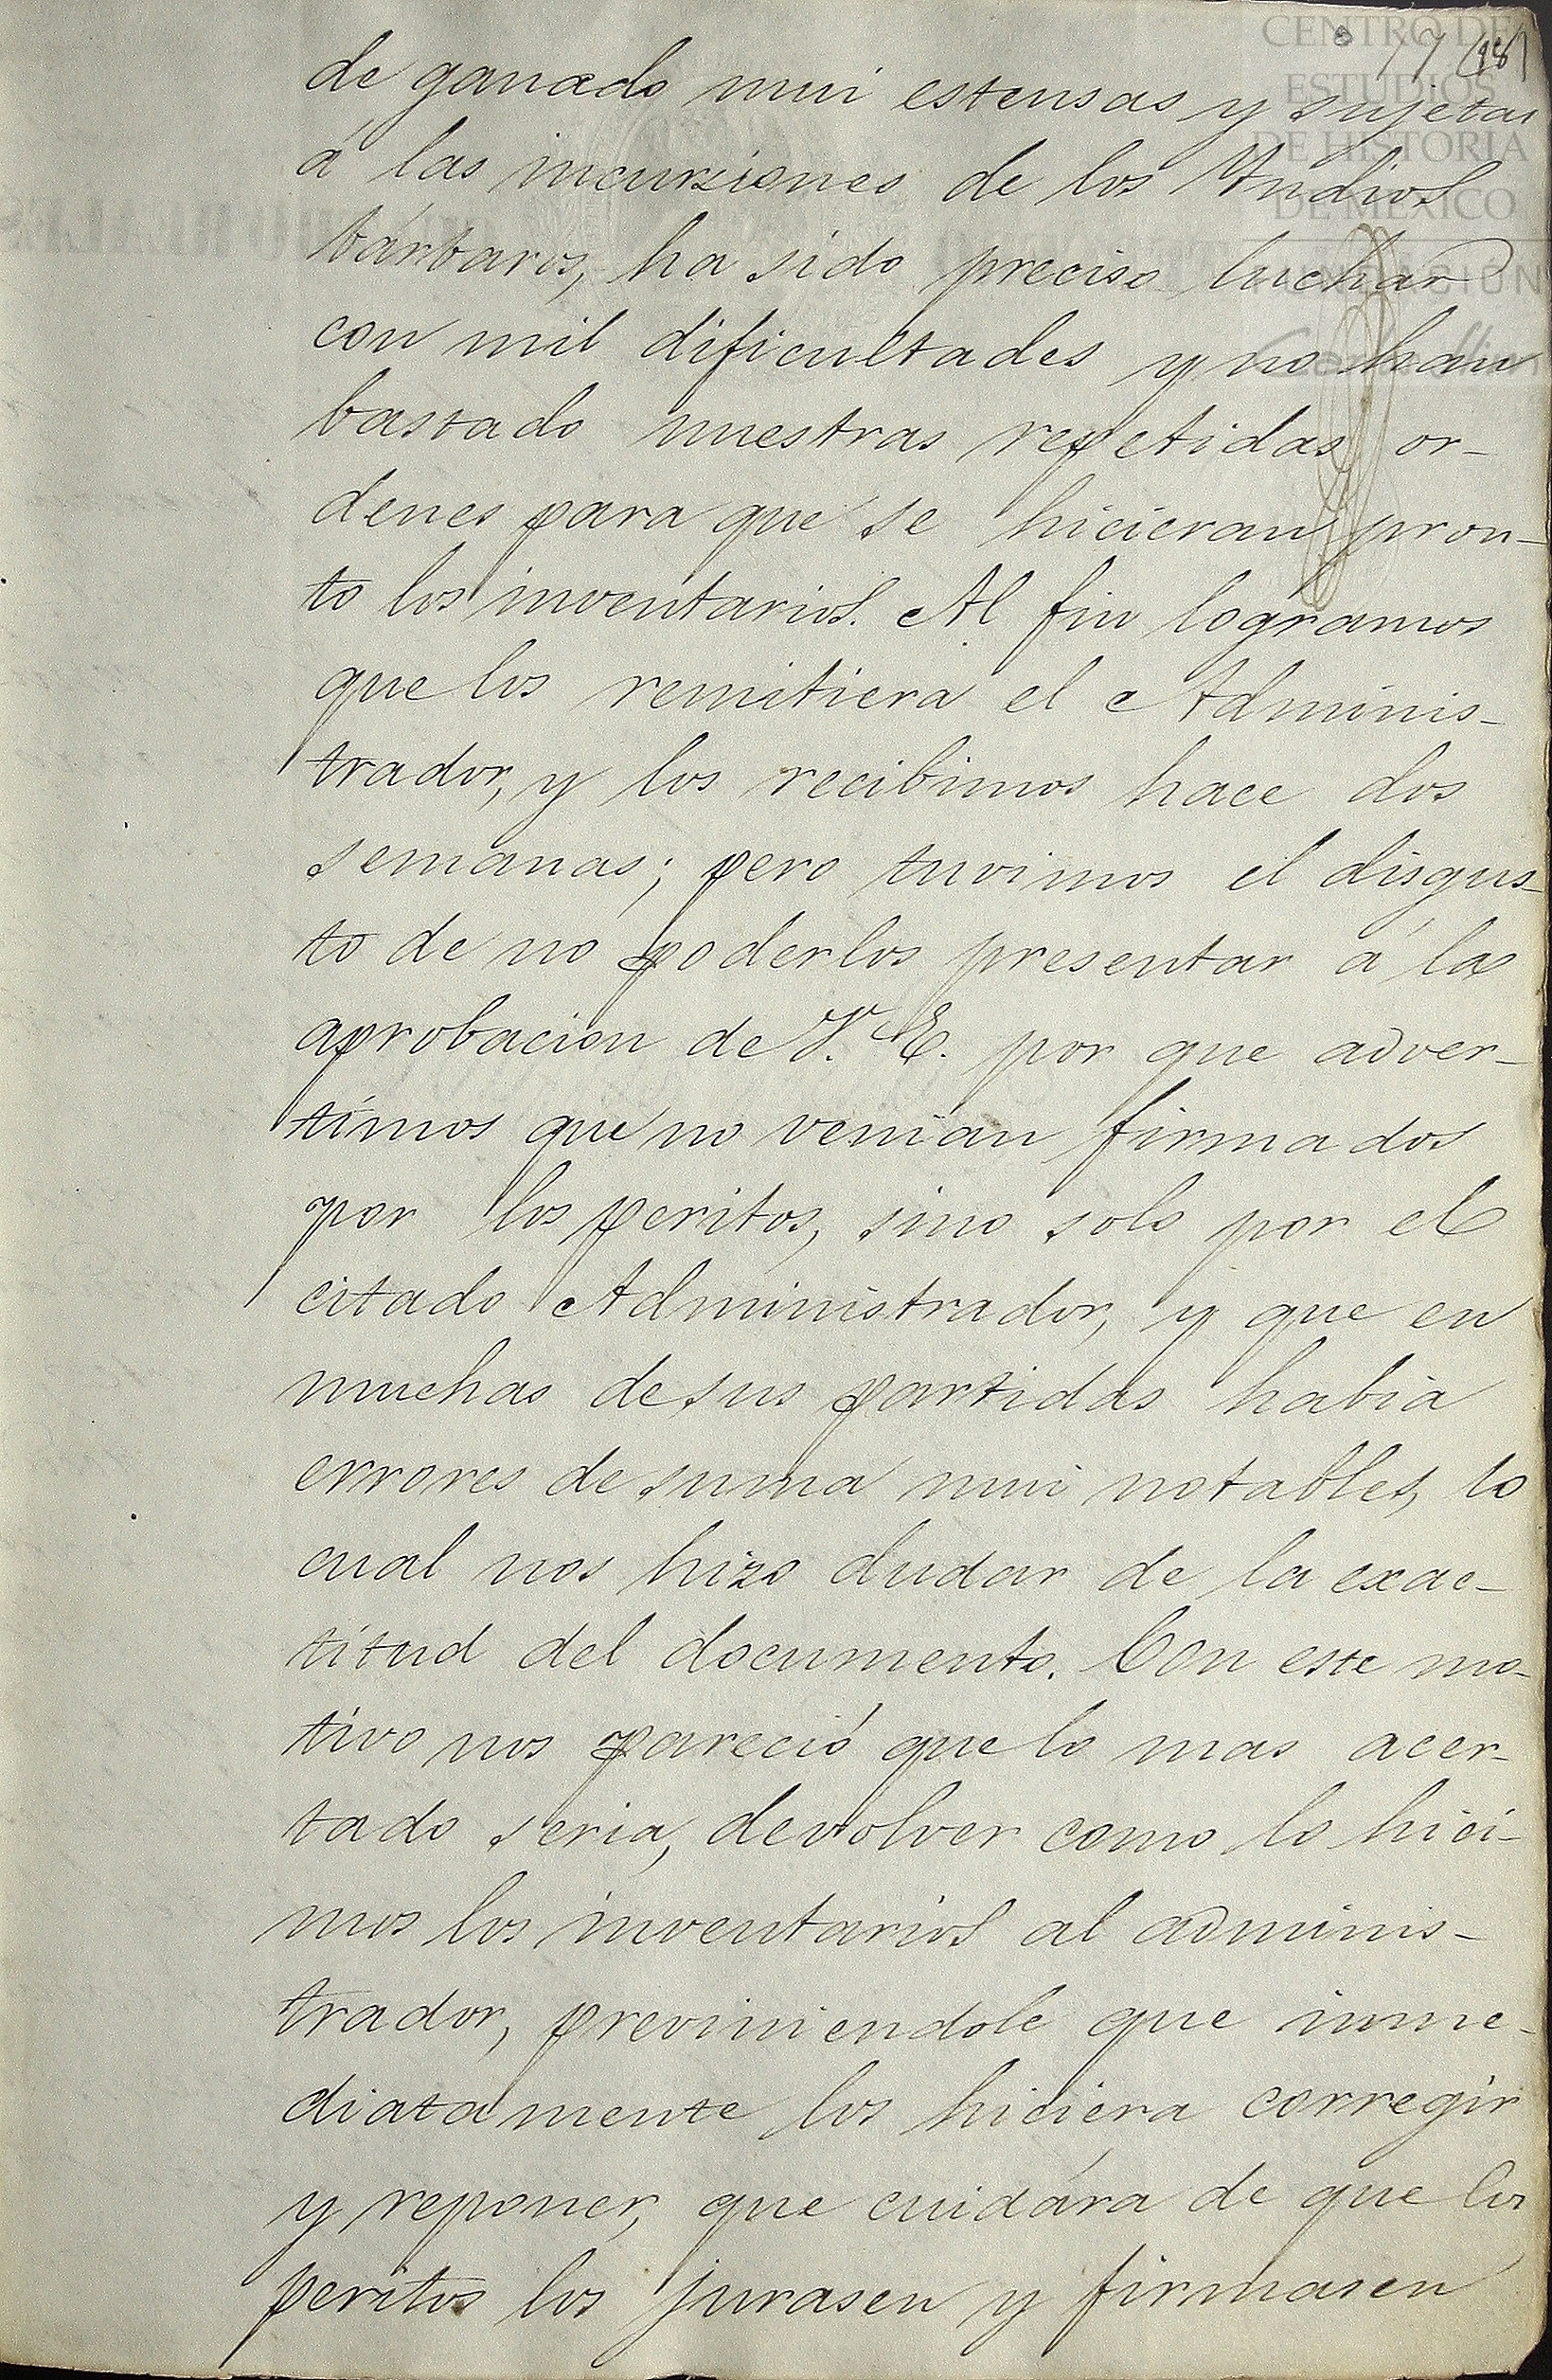 CENTRO DE
ESTUDIOS
DE HISTORIA
DE MÉXICO
FUNDACIÓN
77 (18)
de ganado mui estensas y sujetas
á las incursiones de los Yndios
bárbaros, ha sido preciso luchar
con mil dificultades y no han
bastado nuestras repetidas or-
denes para que se hicieran pron-
to los inventarios. Al fin logramos
que los remitiera el Adminis-
trador, y los recibimos hace dos
semanas; pero tuvimos el disgus-
to de no poderlos presentar á la
aprobacion de V. E. por que adver-
timos que no venian firmados
por los peritos, sino solo por el
citado Administrador, y que en
muchas de sus partidas habia
errores de suma mui notables, lo
cual nos hizo dudar de la exac-
titud del documento. Con este mo-
tivo nos pareció que lo mas acer-
tado seria, devolver como lo hici-
mos los inventarios al adminis-
trador, previniendole que inme-
diatamente los hiciera corregir
y reponer, que cuidára de que los
peritos los jurasen y firmasen